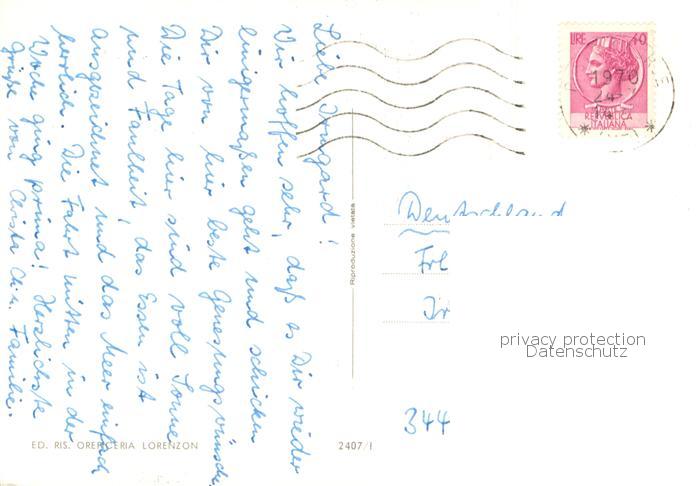 Liebe Irmgard!
Wir hoffen sehr, daß es Dir wieder
einigermaßen geht und schicken
Dir von hier beste Genesungswünsche.
Die Tage hier sind voll Sonne
und Faulheit, das Essen ist
ausgezeichnet und das Meer einfach
herrlich. Die Fahrt mitten in der
Woche ging prima! Herzlichste
Grüße von Christa u. Familie.
LIRE 40
1970
24
REPUBBLICA
ITALIANA
Riproduzione vietata
Deutschland
Frl
Ir
privacy protection
Datenschutz
344
ED. RIS. OREFICERIA LORENZON
2407/I